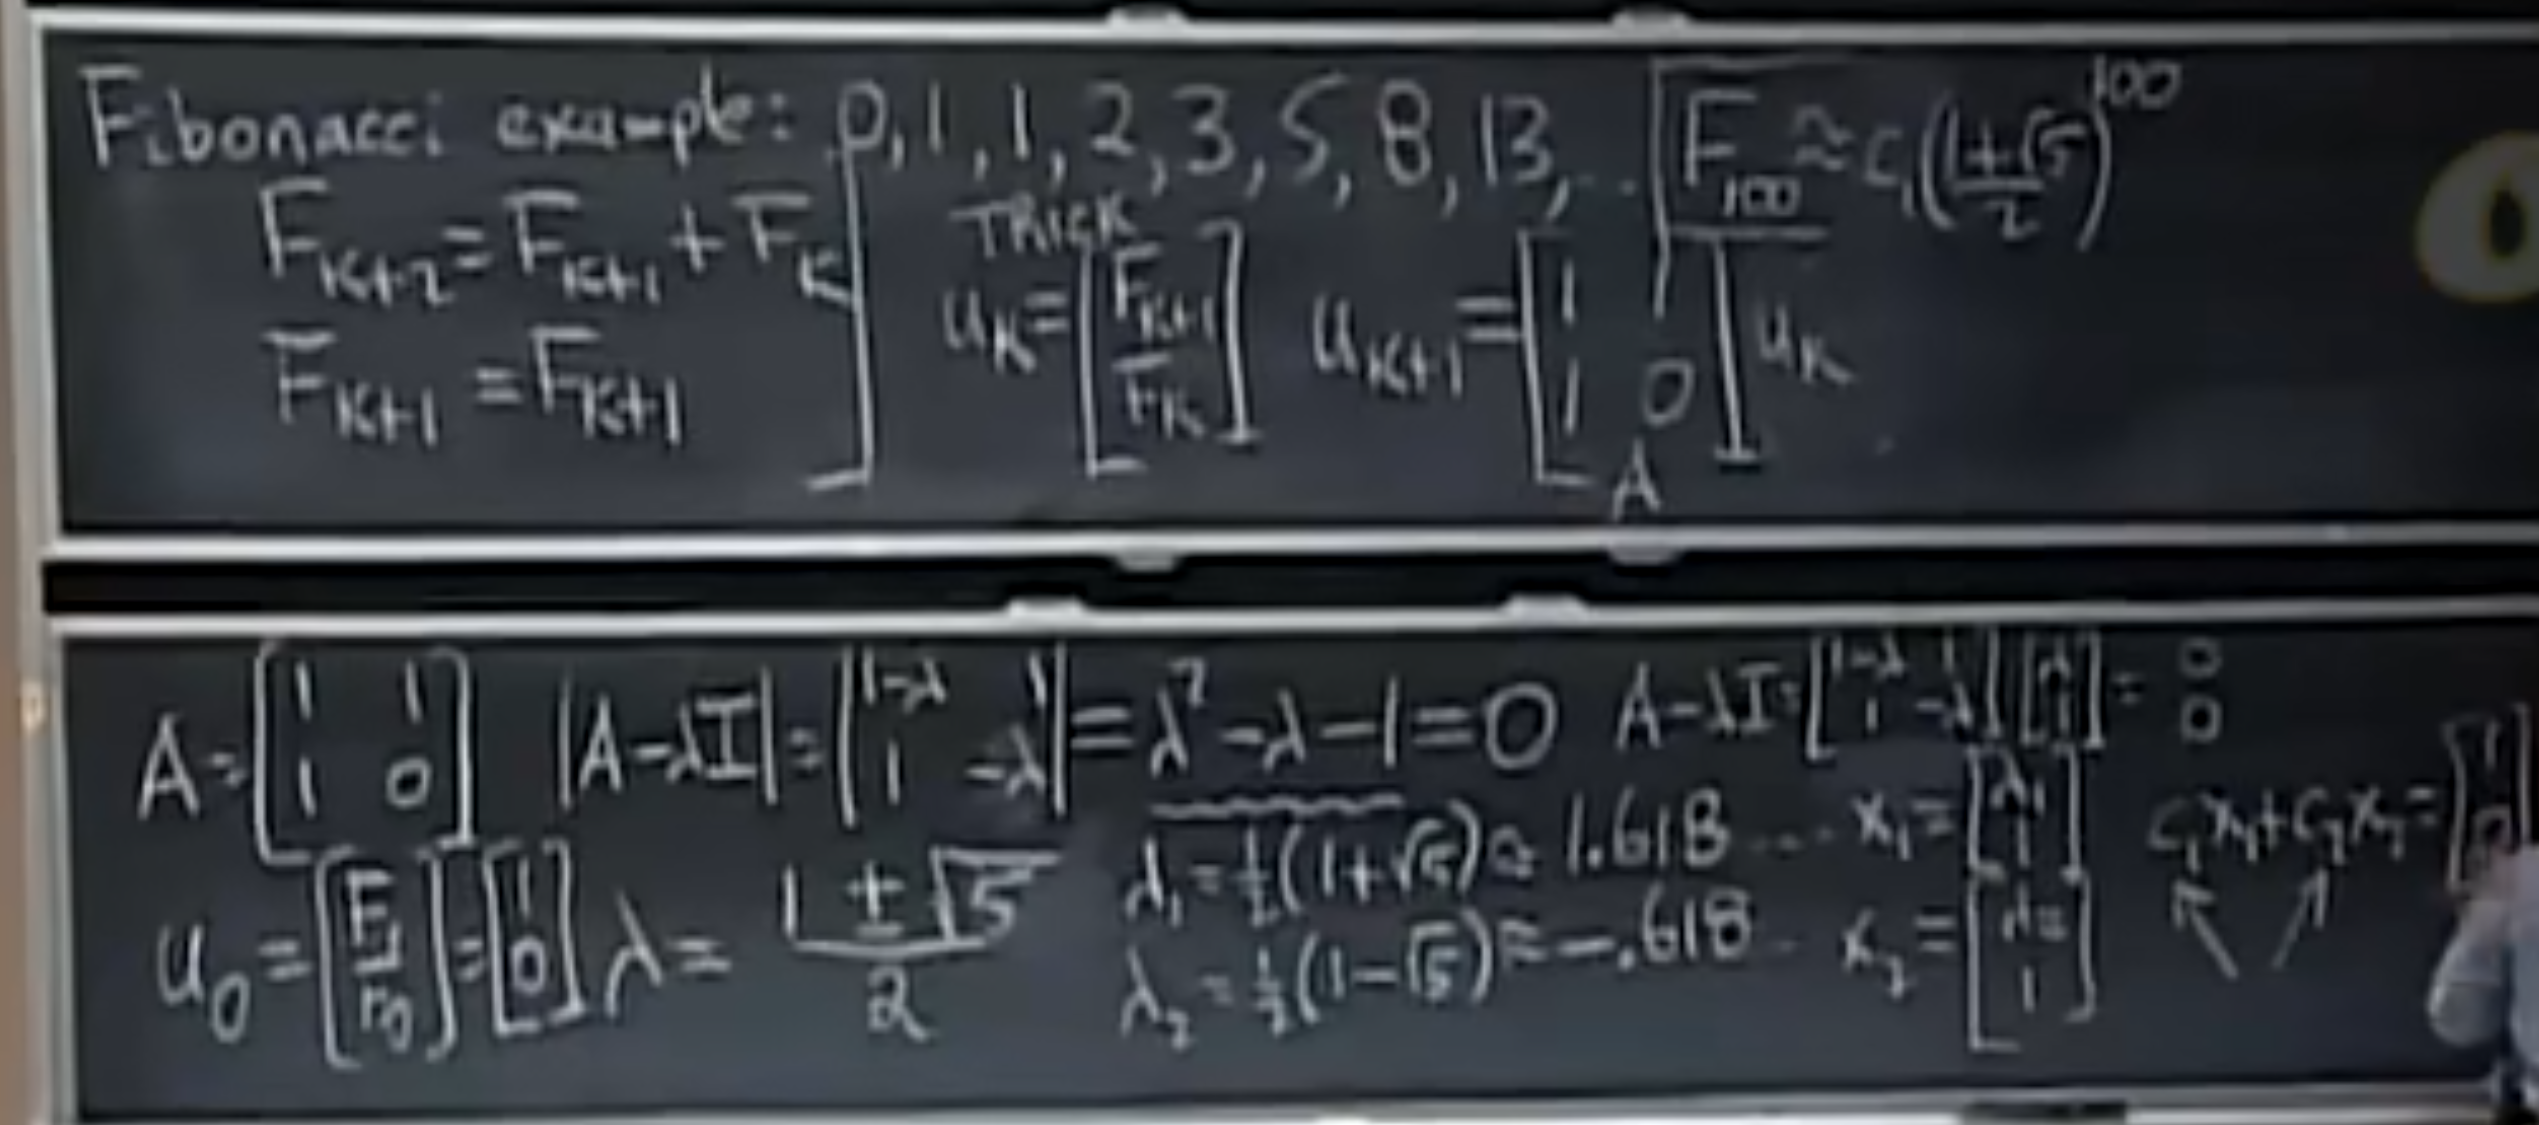 Fibonacci example: 0, 1, 1, 2, 3, 5, 8, 13, ... F₁₀₀ ≈ c₁((1+√5)/2)¹⁰⁰
F_{K+2} = F_{K+1} + F_K
F_{K+1} = F_{K+1}
TRICK
u_K = [F_{K+1}; F_K] u_{K+1} = [1 1; 1 0] u_K
A
A = [1 1; 1 0] |A-λI| = |1-λ 1; 1 -λ| = λ²-λ-1=0 A-λI = [1-λ 1; 1 -λ][λ; 1] = 0 0
u₀ = [F₁; F₀] = [1; 0] λ = (1 ± √5)/2
λ₁ = ½(1+√5) ≈ 1.618... x₁ = [λ₁; 1] c₁x₁+c₂x₂ = [1; 0]
λ₂ = ½(1-√5) ≈ -.618.. x₂ = [λ₂; 1]